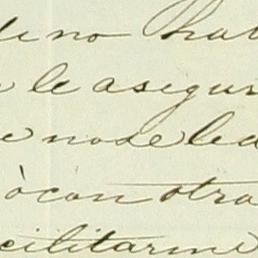 de no hab
le asegur
e no se le d
ò con otra
cilitarme